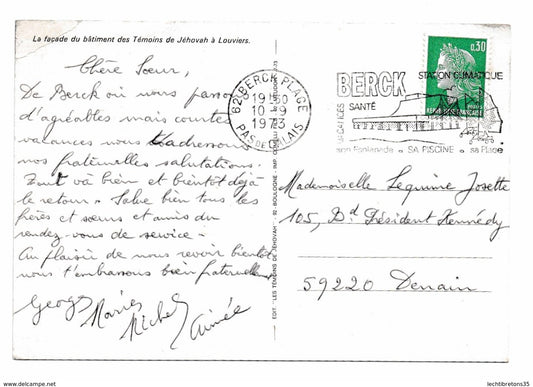 La façade du bâtiment des Témoins de Jéhovah à Louviers.
Chère Sœur,
De Berck où nous passons
d'agréables mais courtes
vacances nous t'adressons
nos fraternelles salutations.
Tout va bien et bientôt déjà
le retour. Salue bien tous les
frères et sœurs et amis du
rendez-vous de service.
Au plaisir de nous revoir bientôt
nous t'embrassons bien fraternellement
Georges Marie
Michel Aimée
EDIT. "LES TÉMOINS DE JÉHOVAH" - 92-BOULOGNE - IMP.
62 BERCK PLAGE
10-9
1973
PAS DE CALAIS
BERCK
STATION CLIMATIQUE
SANTÉ
VACANCES
son Esplanade • SA PISCINE • sa Plage
0,30
REPUBLIQUE FRANÇAISE
Mademoiselle Lequime Josette
105, Bd Président Kennedy
59220 Denain
lechtibretons35